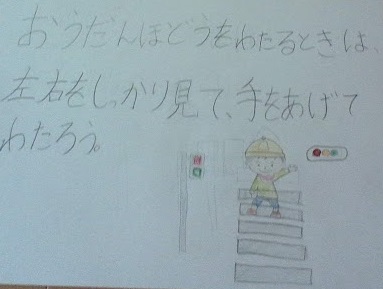 おうだんほどうをわたるときは、
左右をしっかり見て、手をあげて
わたろう。